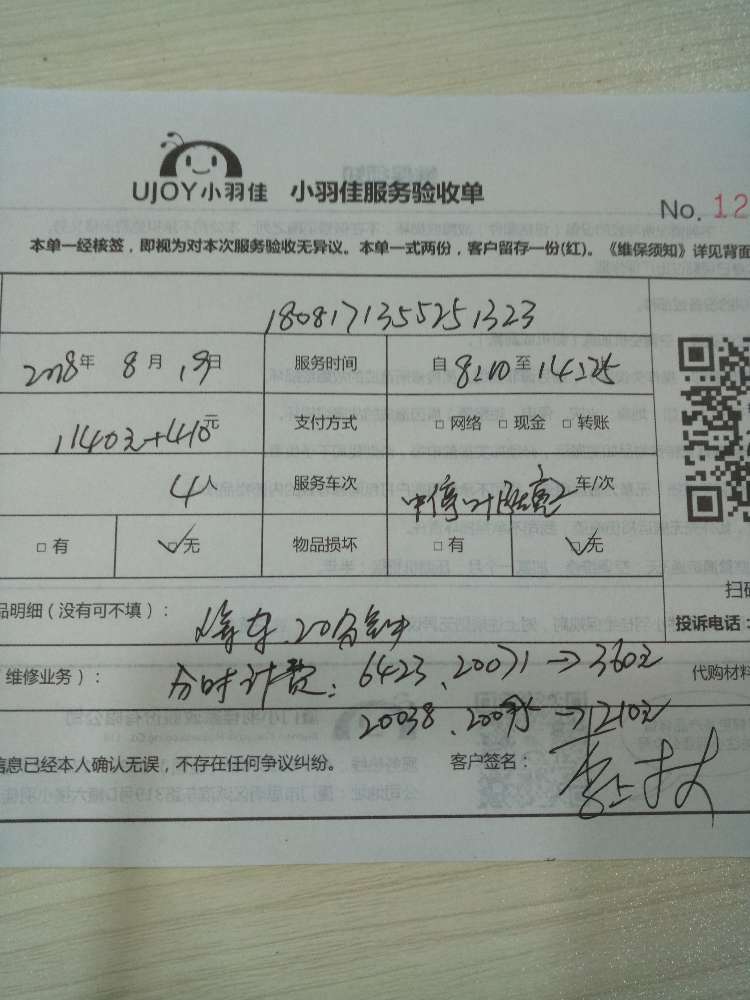 UJOY小羽佳 小羽佳服务验收单
No. 12
本单一经核签，即视为对本次服务验收无异议。本单一式两份，客户留存一份(红)。《维保须知》详见背面
1808171355251323
2018年 8月 19日 服务时间 自8:20至14:25
11402+410元 支付方式 □ 网络 □ 现金 □ 转账
4人 服务车次 车/次
□ 有 □ 无 物品损坏 □ 有 □ 无
扫码
品明细（没有可不填）： 停车20分钟
投诉电话：
维修业务）： 分时计费：6423、20071→360元
代购材料
20038、 →210元
信息已经本人确认无误，不存在任何争议纠纷。 客户签名：